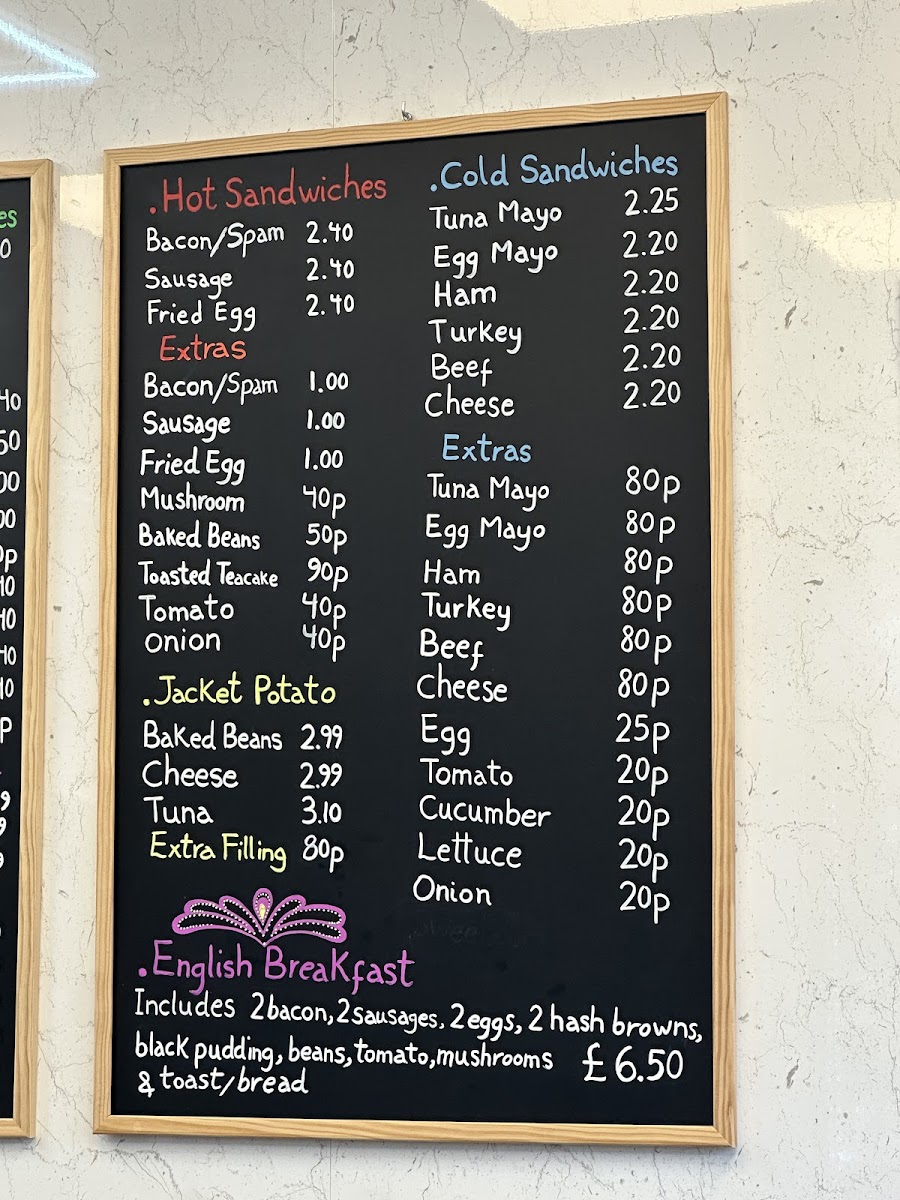 .Hot Sandwiches
Bacon/Spam 2.40
Sausage 2.40
Fried Egg 2.40
Extras
Bacon/Spam 1.00
Sausage 1.00
Fried Egg 1.00
Mushroom 40p
Baked Beans 50p
Toasted Teacake 90p
Tomato 40p
Onion 40p
.Jacket Potato
Baked Beans 2.99
Cheese 2.99
Tuna 3.10
Extra Filling 80p
.Cold Sandwiches
Tuna Mayo 2.25
Egg Mayo 2.20
Ham 2.20
Turkey 2.20
Beef 2.20
Cheese 2.20
Extras
Tuna Mayo 80p
Egg Mayo 80p
Ham 80p
Turkey 80p
Beef 80p
Cheese 80p
Egg 25p
Tomato 20p
Cucumber 20p
Lettuce 20p
Onion 20p
.English Breakfast
Includes 2 bacon, 2 sausages, 2 eggs, 2 hash browns,
black pudding, beans, tomato, mushrooms £6.50
& toast/bread